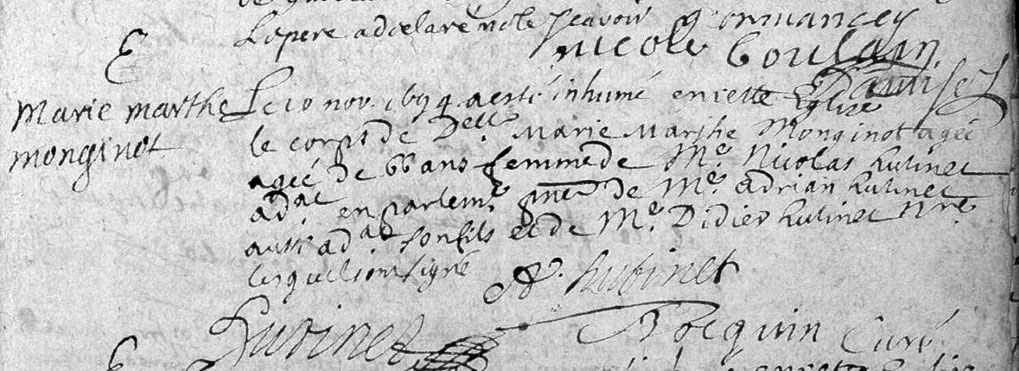 Le pere a declaré ne scavoir
Nicole Coulain
E
Marie marthe
monginot
Le 10 nov. 1694 a esté inhumé en cette Eglise
le corps de Delle Marie Marthe Monginot agée
agée de 66 ans femme de Me. Nicolas hutinet
adat en parlemt. pnce de Me. adrian hutinet
aussi adat son fils et de Me. Didier hutinet Nre
lesquels ont signé
A. hutinet
hutinet
Bocquin Curé